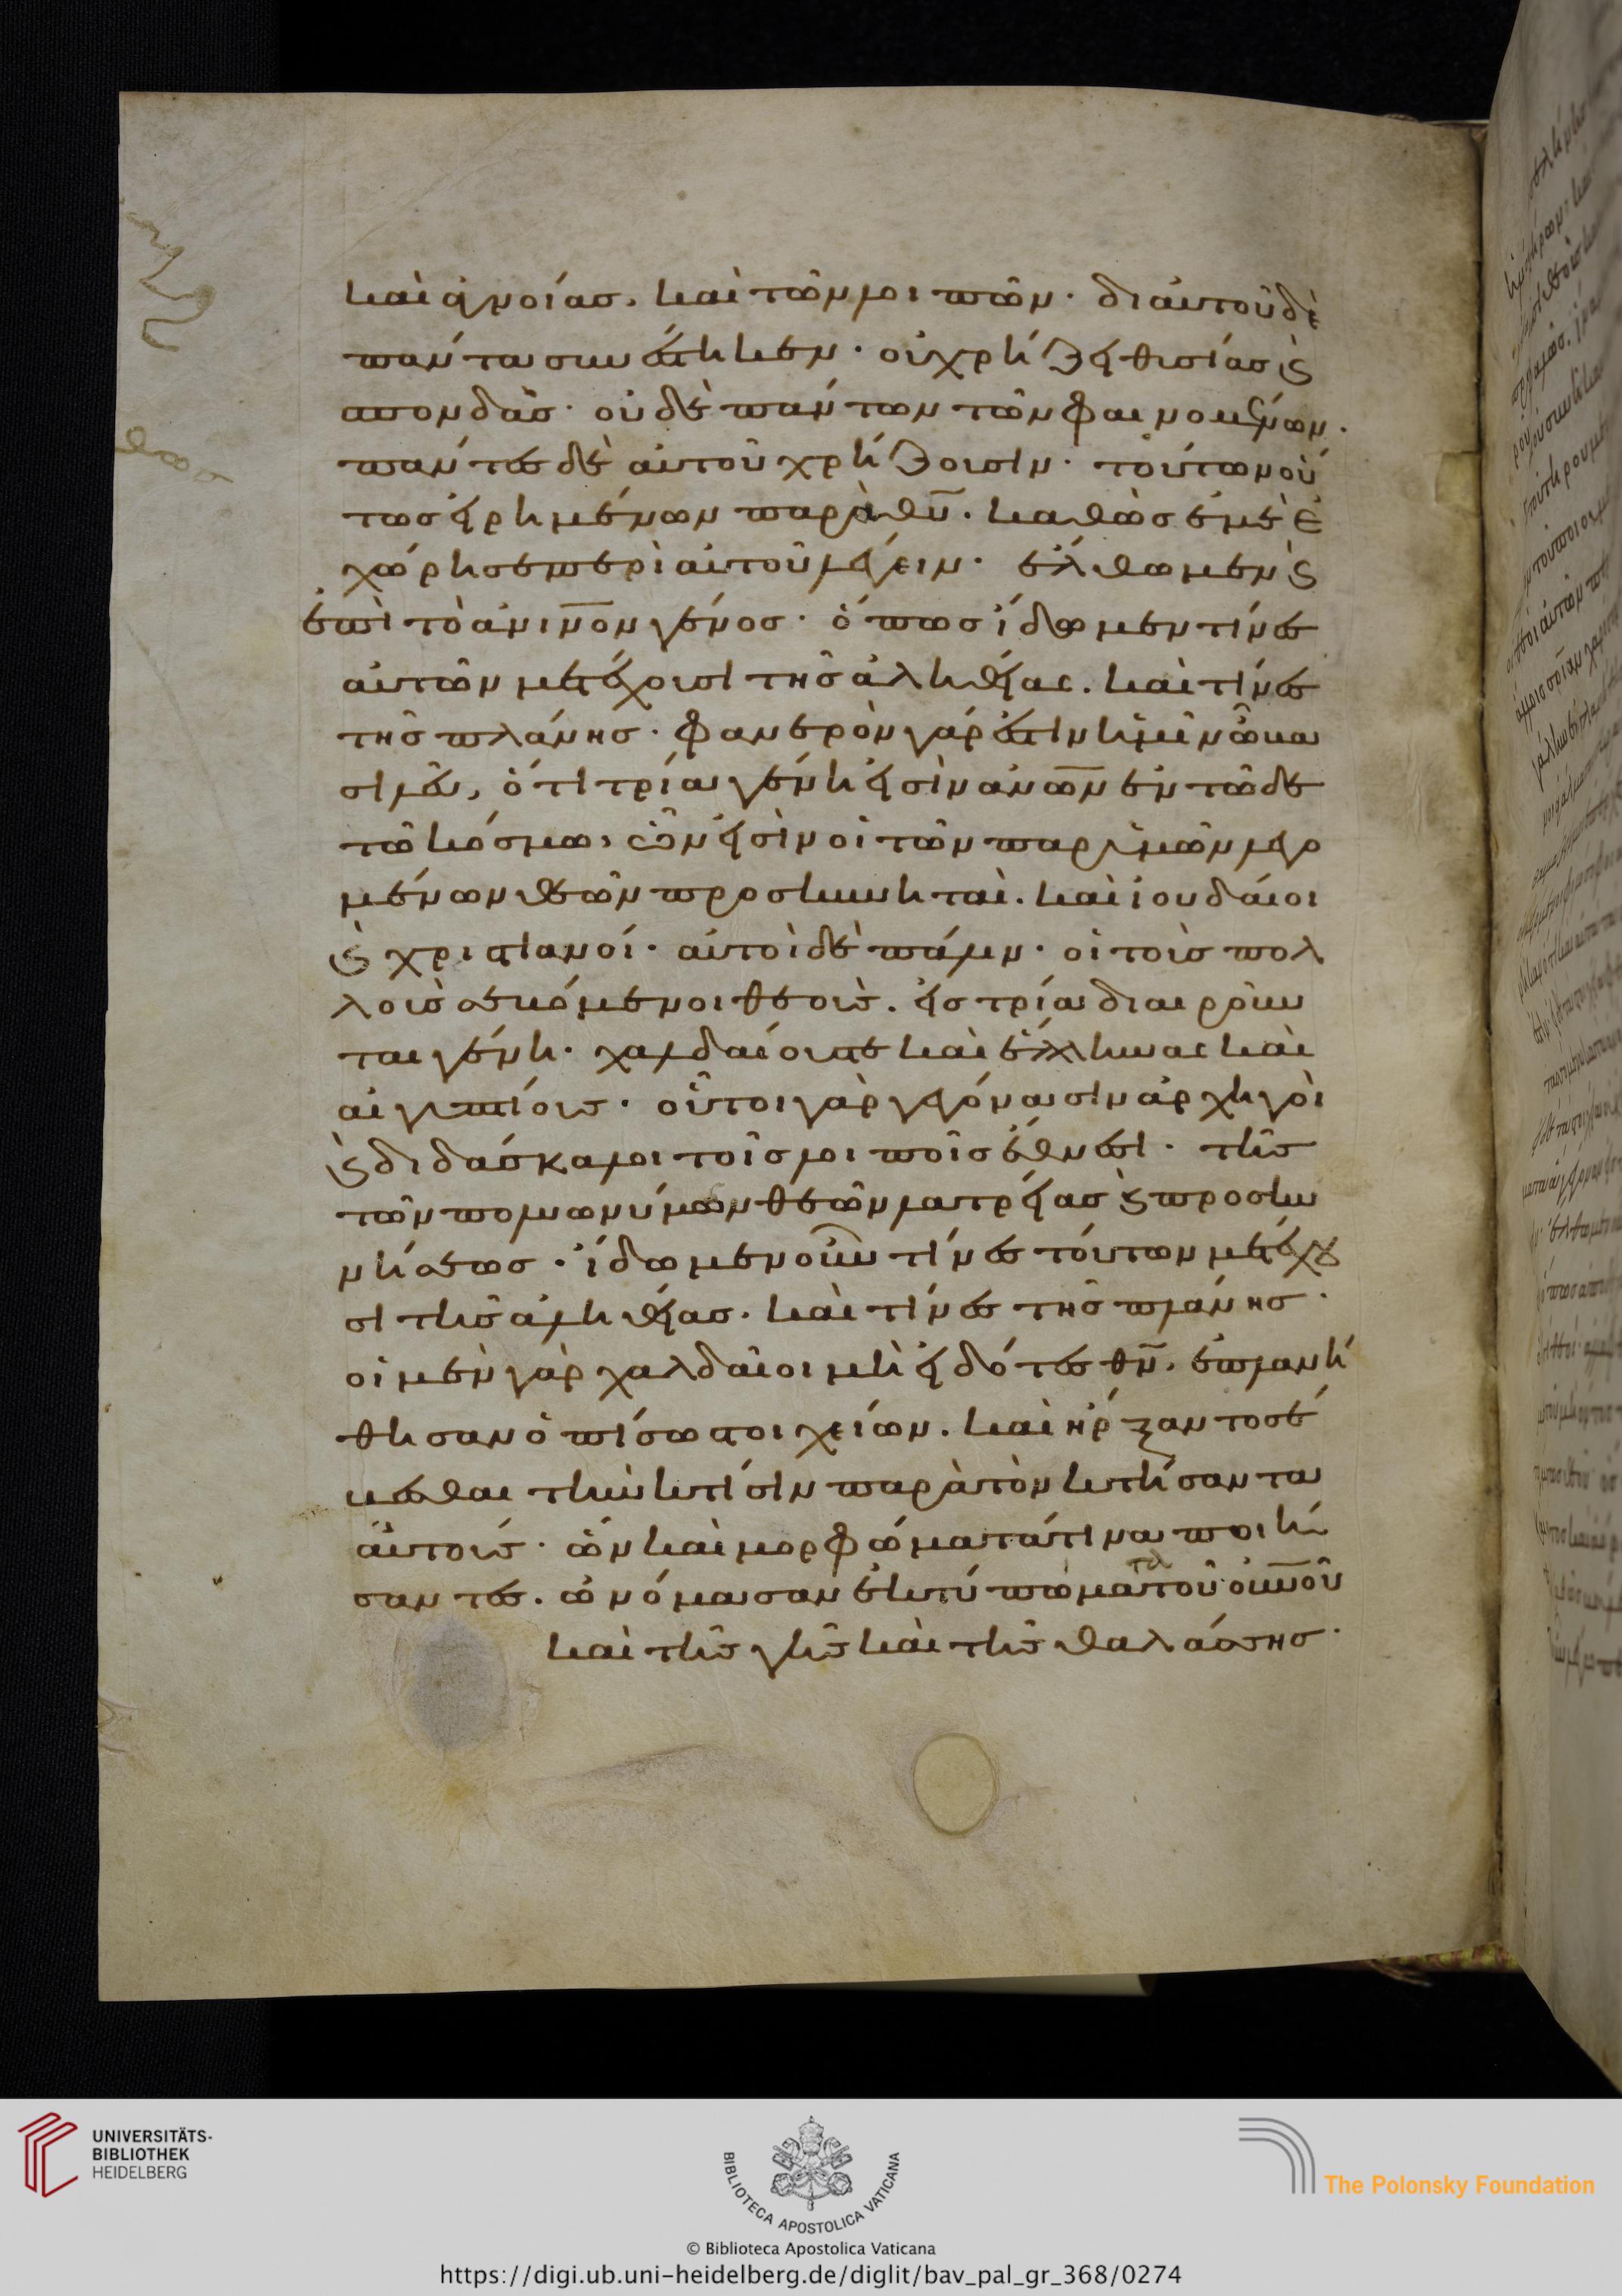 καὶ ἀγνοίας. καὶ τῶν λοιπῶν· δι αὐτοῦ δὲ
πάντα συνέστηκεν· οὐ χρήζει θυσίας ϗ
σπονδᾶς· οὐδὲ πάντων τῶν φαινομένων·
πάντες δὲ αὐτοῦ χρήζουσιν· τούτων οὕ
τως εἰρημένων παρὰ θυ̅. καθὼς ἐμὲ ἐ
χώρησε περὶ αὐτοῦ λέγειν· ἔλθωμεν ϗ
ἐπὶ τὸ ἀνι̅νον γένος· ὅπως ἴδωμεν τίνες
αὐτῶν μετέχουσι τῆς ἀληθείας. καὶ τίνες
τῆς πλάνης· φανερὸν γάρ ἐστιν ἡμῖν ὦ βα
σιλεῦ, ὅτι τρία γένη εἰσὶν ἀνω̅ν ἐν τῶδε
τῶ κόσμω, ὧν εἰσὶν οἱ τῶν παρ ἡμῶν λεγο
μένων θεῶν προσκυνηταὶ. καὶ ἰουδαίοι
ϗ χριστιανοί· αὐτοὶ δὲ πάλιν· οἱ τοὺς πολ
λοὺς σεβόμενοι θεοὺς. εἰς τρία διαιροῦν
ται γένη· χαλδαίους τε καὶ ἕλληνας καὶ
αἰγυπτίους· οὗτοι γὰρ γεγόνασιν ἀρχηγοὶ
ϗ διδάσκαλοι τοῖς λοιποῖς ἔθνεσι· τῆς
τῶν πολυωνύμων θεῶν λατρείας ϗ προσκυ
νήσεως· ἴδωμεν οὖν τίνες τούτων μετέχου
σι τῆς ἀληθείας. καὶ τίνες τῆς πλάνης·
οἱ μὲν γὰρ χαλδαῖοι μὴ εἰδότες θν̅. ἐπλανή
θησαν ὀπίσω στοιχείων. καὶ ἤρξαντο σέ
βεσθαι τὴν κτίσιν παρὰ τὸν κτίσαντα
αὐτούς· ὧν καὶ μορφώματά τινα ποιή
σαντες. ὠνόμασαν ἐκτύπωματα τοῦ οὐν̅οῦ
καὶ τῆς γῆς καὶ τῆς θαλάσσης·
UNIVERSITÄTS-
BIBLIOTHEK
HEIDELBERG
BIBLIOTECA APOSTOLICA VATICANA
© Biblioteca Apostolica Vaticana
The Polonsky Foundation
https://digi.ub.uni-heidelberg.de/diglit/bav_pal_gr_368/0274